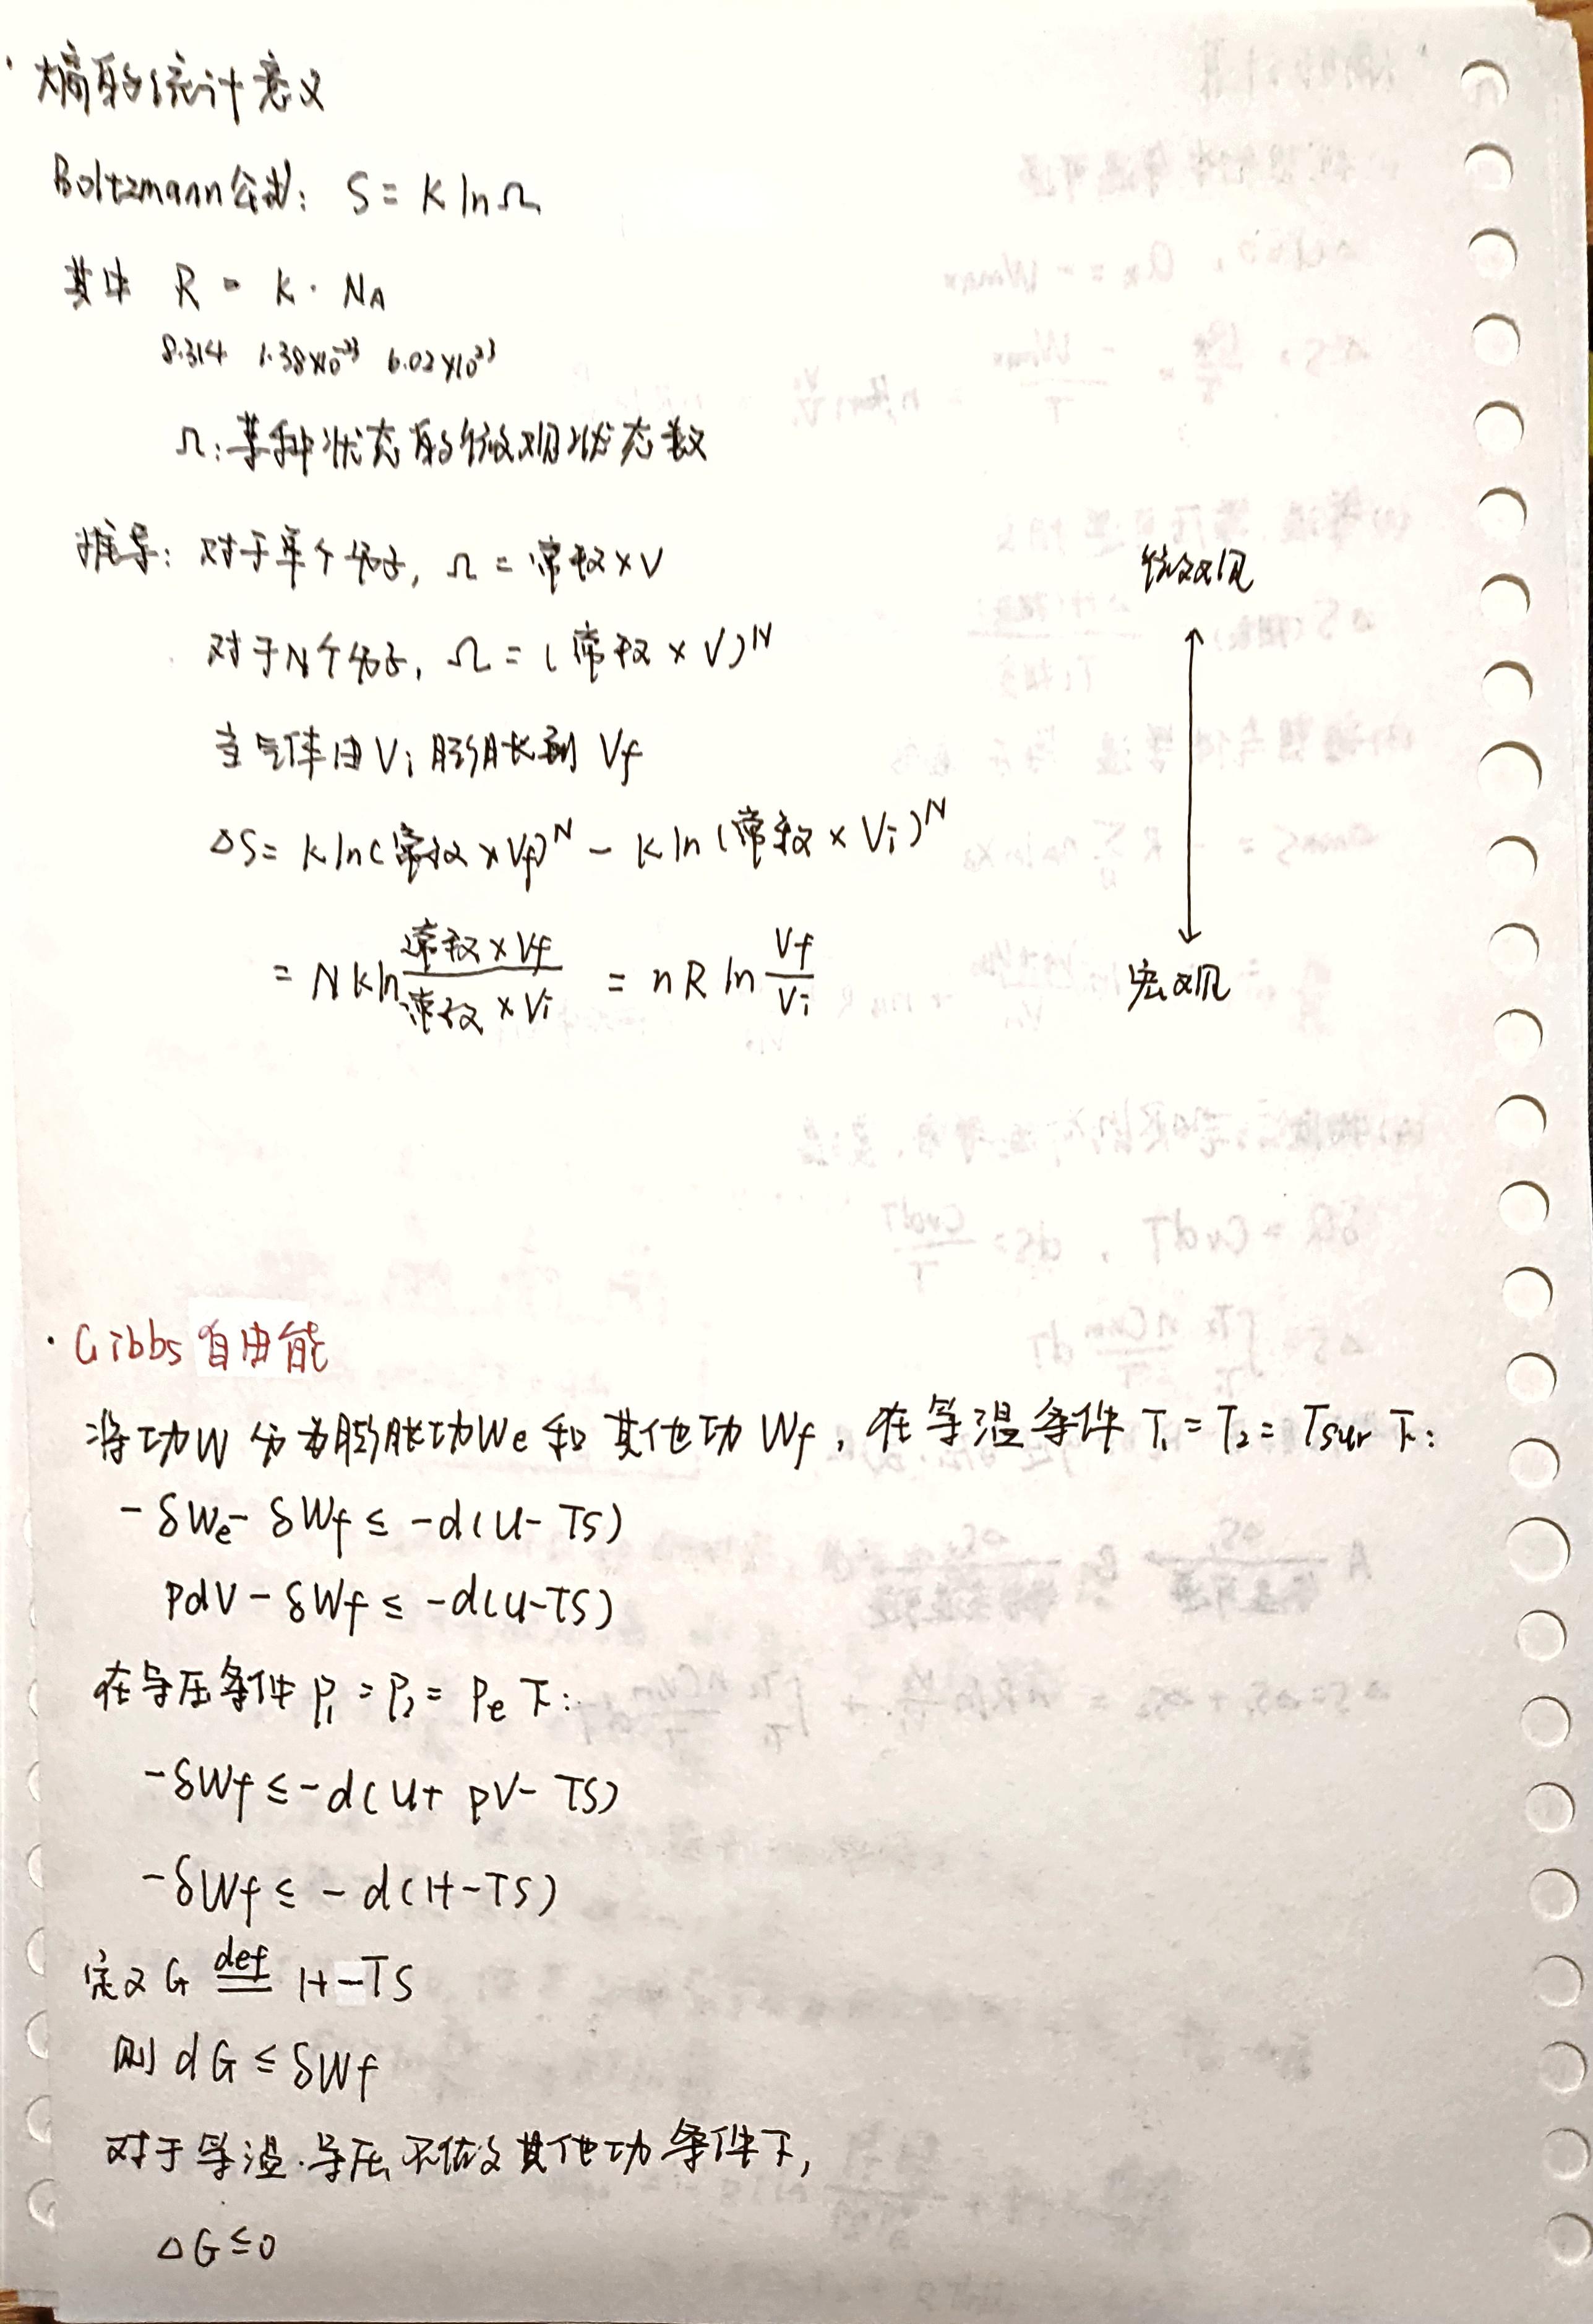 · 熵的统计意义
Boltzmann公式: S = k ln Ω
其中 R = k · NA
8.314 1.38×10⁻²³ 6.02×10²³
Ω: 某种状态的微观状态数
推导: 对于单个分子, Ω = 常数 × V
对于N个分子, Ω = (常数 × V)ᴺ
当气体由 Vi 膨胀到 Vf
ΔS = k ln (常数 × Vf)ᴺ − k ln (常数 × Vi)ᴺ
= N k ln (常数 × Vf)/(常数 × Vi) = n R ln Vf/Vi
微观
宏观
· Gibbs 自由能
将功W 分为膨胀功We 和 其他功 Wf, 在等温条件 T₁ = T₂ = Tsur 下:
−δWe − δWf ≤ −d(U − TS)
pdV − δWf ≤ −d(U−TS)
在等压条件 p₁ = p₂ = pe 下:
−δWf ≤ −d(U + pV − TS)
−δWf ≤ −d(H−TS)
定义 G def== H − TS
则 dG ≤ δWf
对于等温.等压.不做其他功条件下,
ΔG ≤ 0